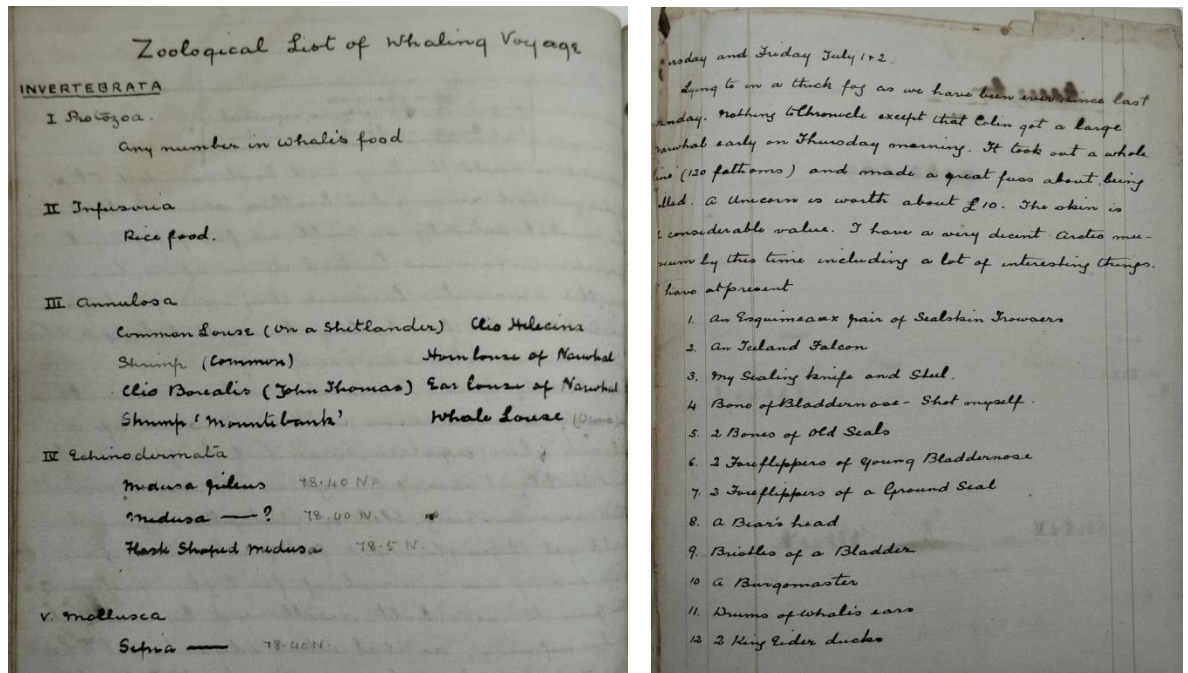 Zoological List of Whaling Voyage
INVERTEBRATA
I Protozoa.
Any number in whale's food
II Infusoria
Rice food.
III Annulosa
Common Louse (on a Shetlander) Clio Helecina
Shrimp (Common) Horn louse of Narwhal
Clio Borealis (John Thomas) Ear louse of Narwhal
Shrimp 'Mountebank' Whale Louse
IV Echinodermata
Medusa pileus 78.40 N.
Medusa — ? 78.40 N.
Flask Shaped Medusa 78.5 N.
V. Mollusca
Sepia — 78.40 N.
ursday and Friday July 1 & 2.
Lying to in a thick fog as we have been ever since last
unday. Nothing to Chronicle except that Colin got a large
arwhal early on Thursday morning. It took out a whole
line (120 fathoms) and made a great fuss about being
lled. A Unicorn is worth about £10. The skin is
considerable value. I have a very decent Arctic mu-
seum by this time including a lot of interesting things.
have at present
1. An Esquimeaux pair of Sealskin Trowsers
2. An Iceland Falcon
3. My Sealing knife and Steel.
4 Bone of Bladdernose - Shot myself.
5. 2 Bones of Old Seals
6. 2 Foreflippers of Young Bladdernose
7. 2 Foreflippers of a Ground Seal
8. A Bear's head
9. Bristles of a Bladder
10 A Burgomaster
11. Drums of whale's ears
12 2 King Eider ducks